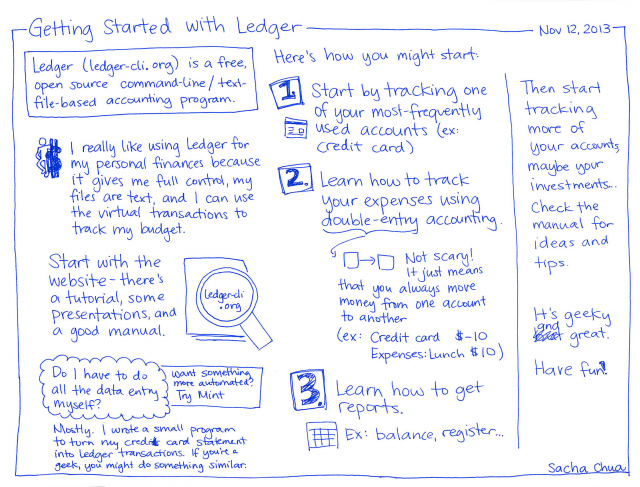 Getting Started with Ledger
Nov 12, 2013
Ledger (ledger-cli.org) is a free,
open source command-line/text-
file-based accounting program.
I really like using Ledger for
my personal finances because
it gives me full control, my
files are text, and I can use
the virtual transactions to
track my budget.
Start with the
website-there's
a tutorial, some
presentations, and
a good manual.
ledger-cli
.org
Do I have to do
all the data entry
myself?
want something
more automated?
Try Mint
Mostly. I wrote a small program
to turn my credit card statement
into Ledger transactions. If you're a
geek, you might do something similar.
Here's how you might start:
1.
Start by tracking one
of your most-frequently
used accounts (ex:
credit card)
2.
Learn how to track
your expenses using
double-entry accounting.
Not scary!
It just means
that you always move
money from one account
to another
(ex: Credit card $-10
Expenses:Lunch $10)
3.
Learn how to get
reports.
Ex: balance, register...
Then start
tracking
more of
your accounts,
maybe your
investments...
Check the
manual for
ideas and
tips.
It's geeky
and
great.
Have fun!
Sacha Chua